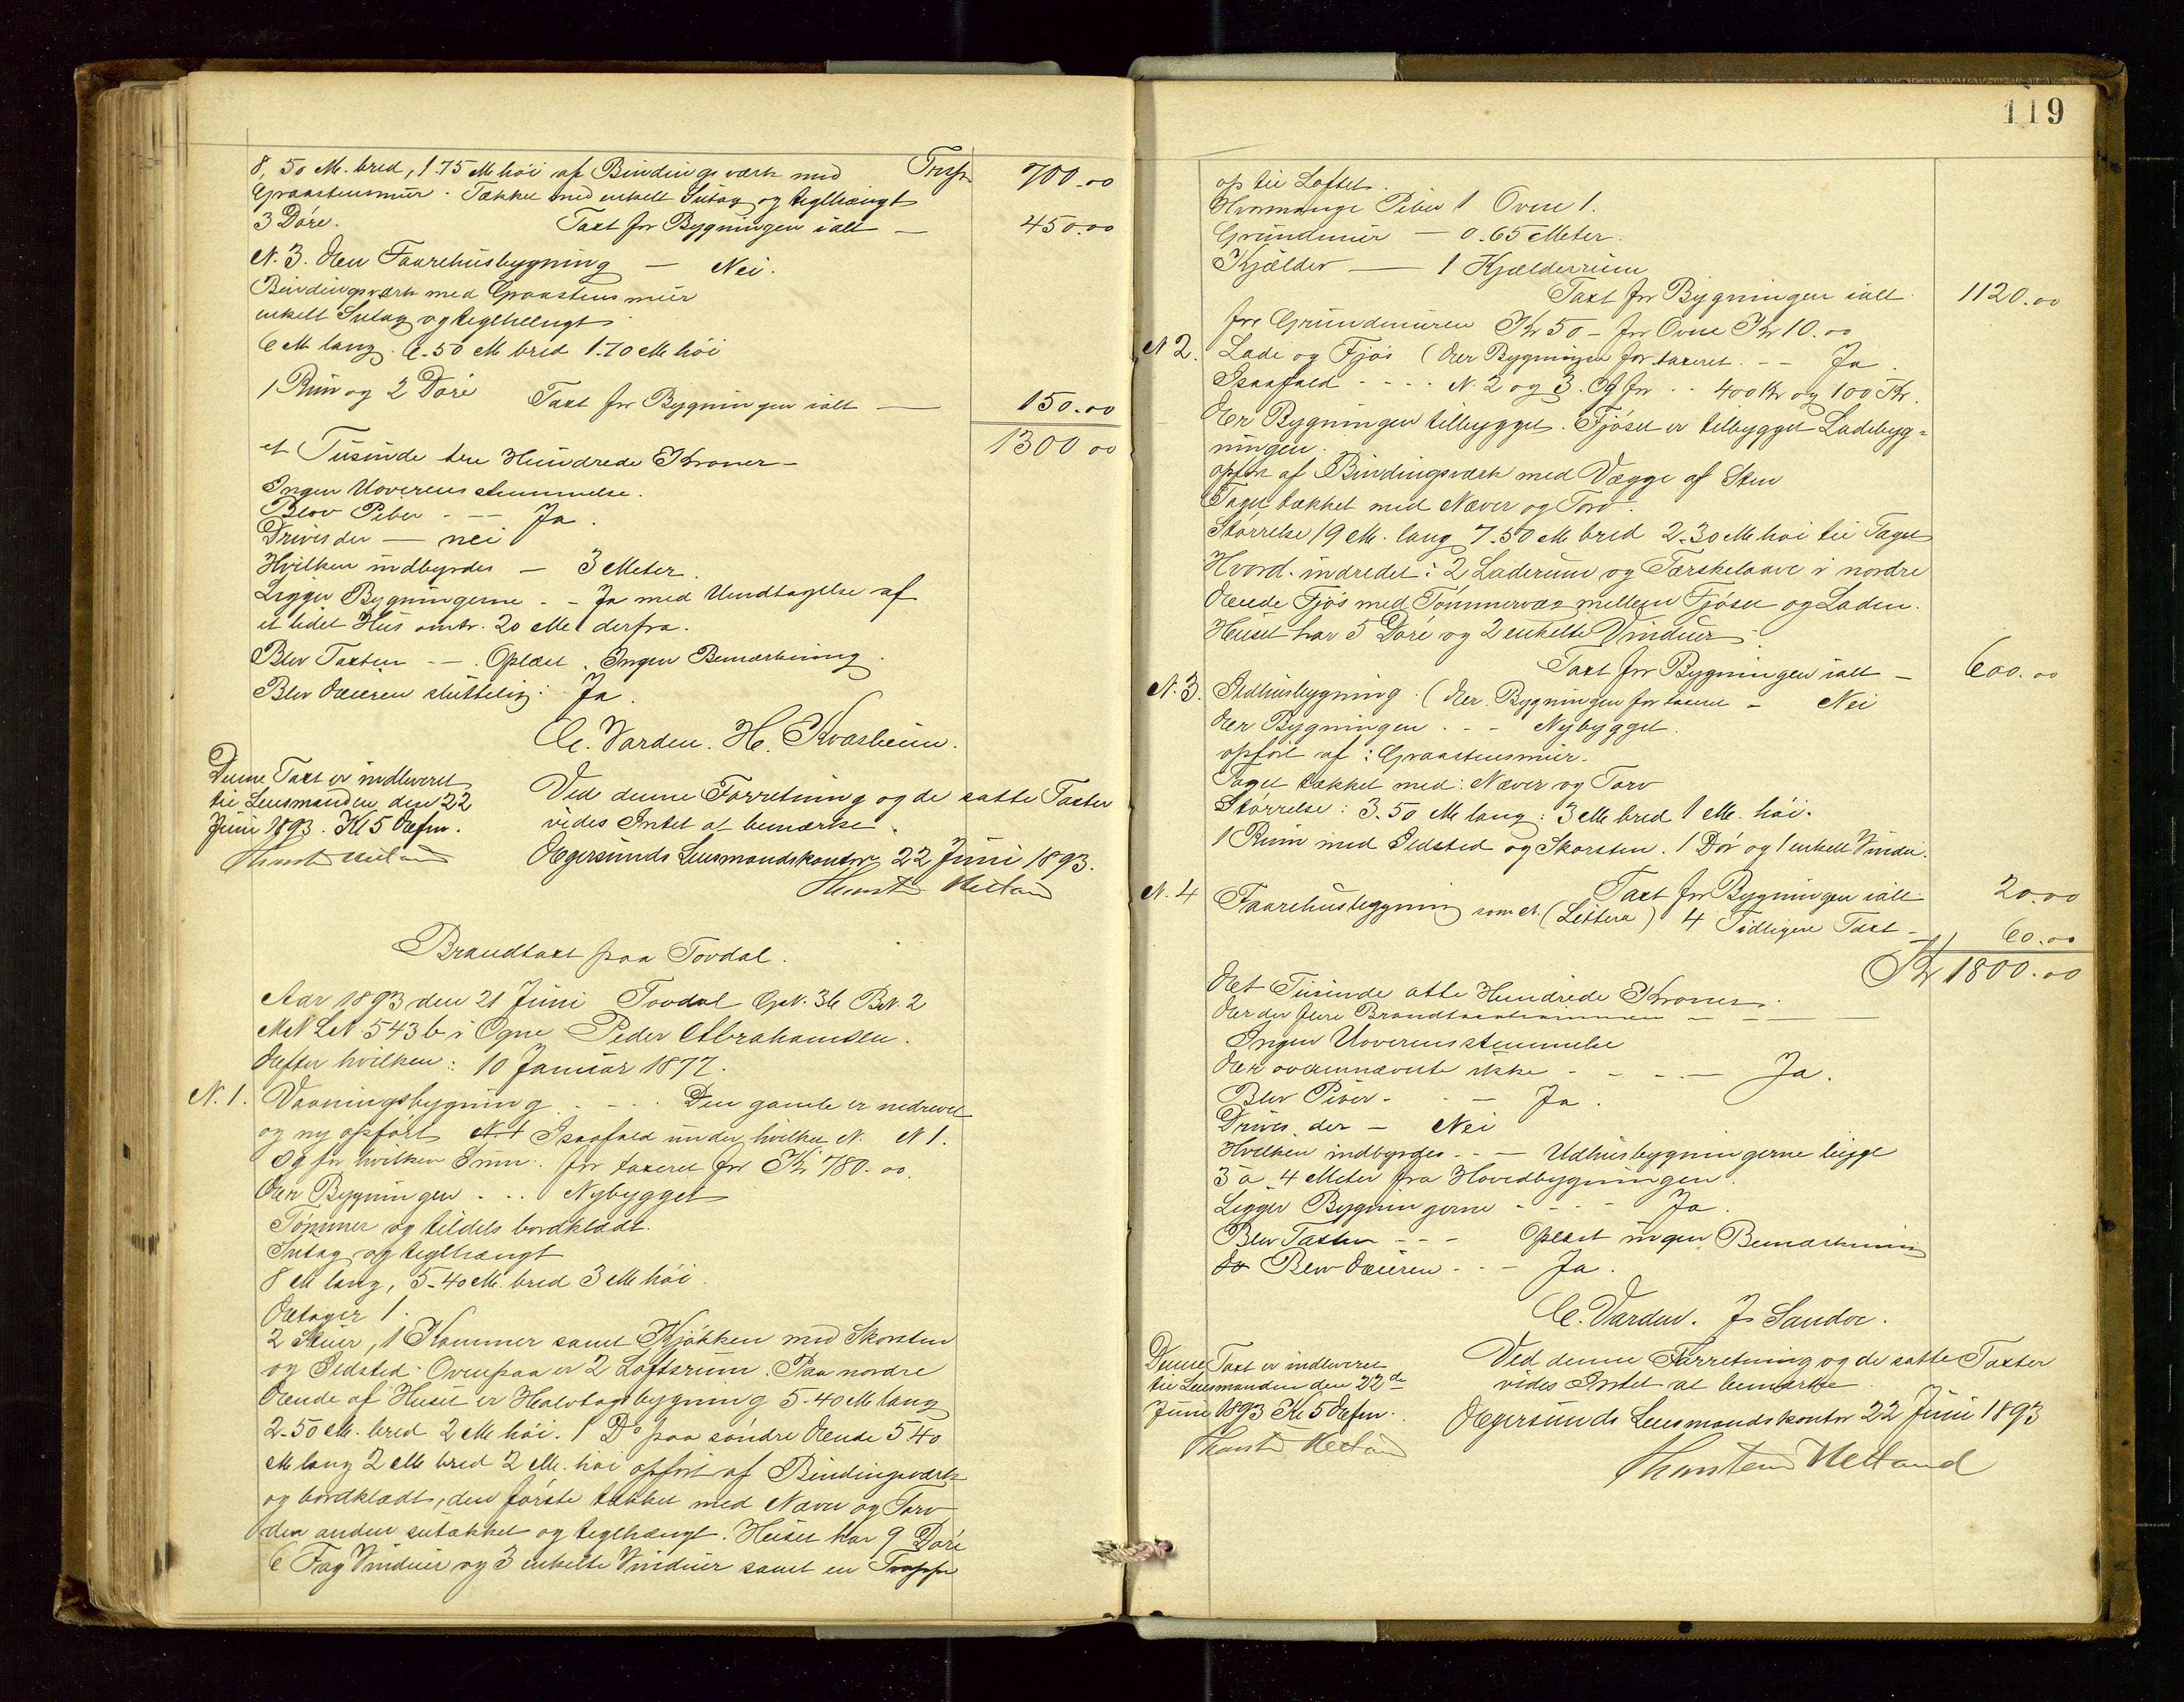 8,50 M. bred, 1.75 M høi af Bindingsværk med Trsp. 700.00
Graastensmur. Tækket med enkelt Sutag og teglhængt
3 Døre. Taxt for Bygningen ialt — 450.00
N. 3. Een Faarehusbygning — Nei.
Bindingsværk med Graastensmur
enkelt Sutag og teglhængt
6 M lang. 6.50 M bred 1.70 M høi
1 Rum og 2 Døre Taxt for Bygningen ialt — 150.00
et Tusinde tre Hundrede Kroner — 1300 00
Ingen Uoverensstemmelse.
Blev Piber - — Ja.
Drives der — nei
Hvilken indbyrdes — 3 Meter.
Ligger Bygningerne - - Ja med Undtagelse af
et lidet Hus omtr. 20 Me derfra.
Blev Taxten - — . Oplæst. Ingen Bemærkning.
Blev Eieren sluttelig: Ja.
E. Varden. H. Kvasheim.
Denne Taxt er indleveret
til Lensmanden den 22
Juni 1893. Kl 5 Efm.
Thorsten Helland
Ved denne Forretning og de satte Taxter
vides Intet at bemærke.
Egersunds Lensmandskontor 22 Juni 1893.
Thorsten Helland
Brandtaxt paa Tovdal.
Aar 1893 den 21 Juni Tovdal GN. 36 BN. 2
MN LN 543 b i Ogne Peder Abrahamsen.
Efter hvilken: 10 Januar 1877.
N. 1. Vaaningsbygning - - - Den gamle er nedrevet
og ny opført N. 1 Isaafald under hvilken N. N 1.
Og for hvilken Sum: før taxeret for Kr 780.00.
Er Bygningen - . . Nybygget
Tømmer og tildels bordklædt.
Sutag og teglhængt
8 M lang, 5.40 M. bred 3 M høi.
Etager 1.
2 Stuer, 1 Kammer samt Kjøkken med Skorsten
og Ildsted. Ovenpaa er 2 Loftsrum. Paa nordre
Ende af Huset er Halvtagsbygning 5.40 M lang
2.50 M. bred 2 M høi. 1 Do paa søndre Ende 5.40
M lang 2 M bred 2 M. høi opført af Bindingsværk
og bordklædt, den første tækket med Næver og Torv
den anden sutækket og teglhængt. Huset har 9 Døre
6 Fag Vinduer og 3 enkelte Vinduer samt en Trappe
119
op til Loftet.
Hvormange Piber 1 Ovne 1.
Grundmur — 0.65 Meter.
Kjælder — 1 Kjælderrum
Taxt for Bygningen ialt 1120.00
for Grundmuren Kr 50 - for Ovne Kr 10.00
N 2. Lade og Fjøs (Er Bygningen før taxeret. - - Ja.
Isaafald - - - - N. 2 og 3. Og for - - 400 Kr og 100 Kr.
Er Bygningen tilbygget. Fjøset er tilbygget Ladebyg=
ningen.
opført af Bindingsværk med Vægge af Sten
Taget tækket med Næver og Torv.
Størrelse 19 M. lang 7.50 M bred 2.30 M høi til Taget
Hvord. indredet: 2 Laderum og Tærskelaave i nordre
Ende Fjøs med Tømmervæg mellem Fjøset og Laden.
Huset har 5 Døre og 2 enkelte Vinduer
Taxt for Bygningen ialt — 600.00
N. 3. Ildhusbygning. (Er Bygningen før taxeret - Nei
Er Bygningen - - - Nybygget.
opført af: Graastensmur.
Taget tækket med: Næver og Torv
Størrelse: 3.50 M lang: 3 M bred 1 M. høi.
1 Rum med Ildsted og Skorsten. 1 Dør og 1 enkelt Vindu.
Taxt for Bygningen ialt 20.00
N. 4 Faarehusbygning som N. (Littera) 4 Tidligere Taxt — 60.00
Kr 1800.00
Et Tusinde otte Hundrede Kroner.
Er der flere Brandtaxtrammer — — — —
Ingen Uoverensstemmelse
Er ovennævnte ikke - - - — Ja.
Blev Piber - - — Ja.
Drives der — Nei
Hvilken indbyrdes - - — Udhusbygningerne ligge
3 a 4 Meter fra Hovedbygningen.
Ligger Bygningerne - - - - Ja.
Blev Taxten - - - Oplæst ingen Bemærkning
do Blev Eieren - - — Ja.
E. Varden. J. Sandve.
Denne Taxt er indleveret
til Lensmanden den 22de
Juni 1893 Kl 5 Efm.
Thorsten Helland
Ved denne Forretning og de satte Taxter
vides Intet at bemærke
Egersunds Lensmandskontor 22 Juni 1893
Thorsten Helland